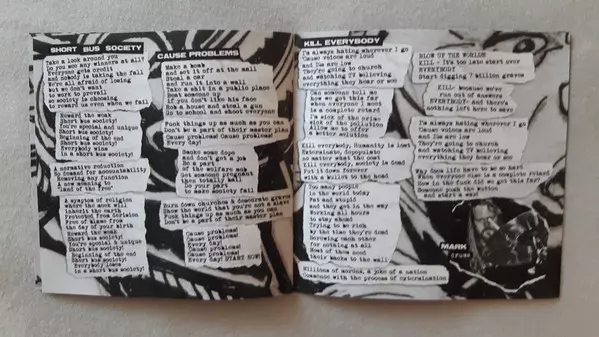 SHORT BUS SOCIETY
Take a look around you
Do you see any winners at all?
Everyone gets credit
and nobody is taking the fall
We're all afraid of losing
but we don't want
to work to prevail
so society is choosing
to reward us even when we fail
Reward the weak
Short bus society!
You're special and unique
Short bus society!
Beginning of the end
Short Bus society!
Everybody wins
in a short bus society!
A normative reduction
A demand for accountability
Removing any function
is now mandating
"land of the free"
A symptom of religion
where the meek will
inherit the earth
Protected from derision
free of blame from
the day of your birth
Reward the weak
Short bus society!
You're special & unique
Short bus society!
Beginning of the end
Short bus society!
Everybody loses
in a short bus society!
CAUSE PROBLEMS
Make a bomb
and set it off at the mall
Steal a car
and run it into a wall
Take a shit in a public place
Beat someone up
if you don't like his face
Rob a house and steal a gun
Go to school and shoot everyone
Fuck things up as much as you can
Don't be a part of their master plan
Cause problems! Cause problems!
Every day!
Smoke some dope
and don't get a job
Be a part
of the welfare mob
Get someone pregnant
then totally bail
Do your part
to make society fail
Burn down churches & desecrate graves
Show the world that you're not a slave
Fuck things up as much as you can
Don't be a part of their master plan
Cause problems!
Cause problems!
Every day!
Cause problems!
Cause problems!
Every day! START NOW!
KILL EVERYBODY
I'm always hating wherever I go
'Cause voices are loud
and I'm are low
They're going to church
and watching TV believing
everything they hear or see
Can someone tell me
how we got this far
when everyone I meet
is a complete retard
I'm sick of the noise
sick of the pollution
Allow me to offer
a better solution
Kill everybody, Humanity is lost
Exterminate, depopulate
no matter what the cost
Kill everybody, society is dead
Put it down forever
with a bullet to the head
Too many people
in the world today
Fat and stupid
and they get in the way
Working all hours
to stay ahead
Trying to be rich
by the time they're dead
Screwing each other
for nothing at all
Most of them need
their backs to the wall
Millions of morons, a joke of a nation
Commence with the process of extermination
BLOW UP THE WORLD!!
KILL - It's too late start over
EVERYBODY
Start digging 7 billion graves
KILL- because we've
run out of answers
EVERYBODY- and there's
nothing left here to save
I'm always hating wherever I go
'Cause voices are loud
and I'm are low
They're going to church
and watching TV believing
everything they hear or see
Why does life have to be so hard
When everyone else is a complete retard
How in the fuck did we get this far
Someone push the button
and start a war!
MARK
cruse